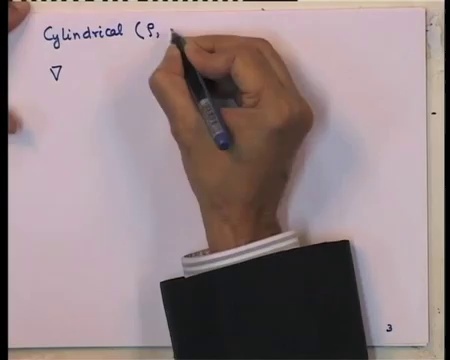 Cylindrical (ρ,
∇
3